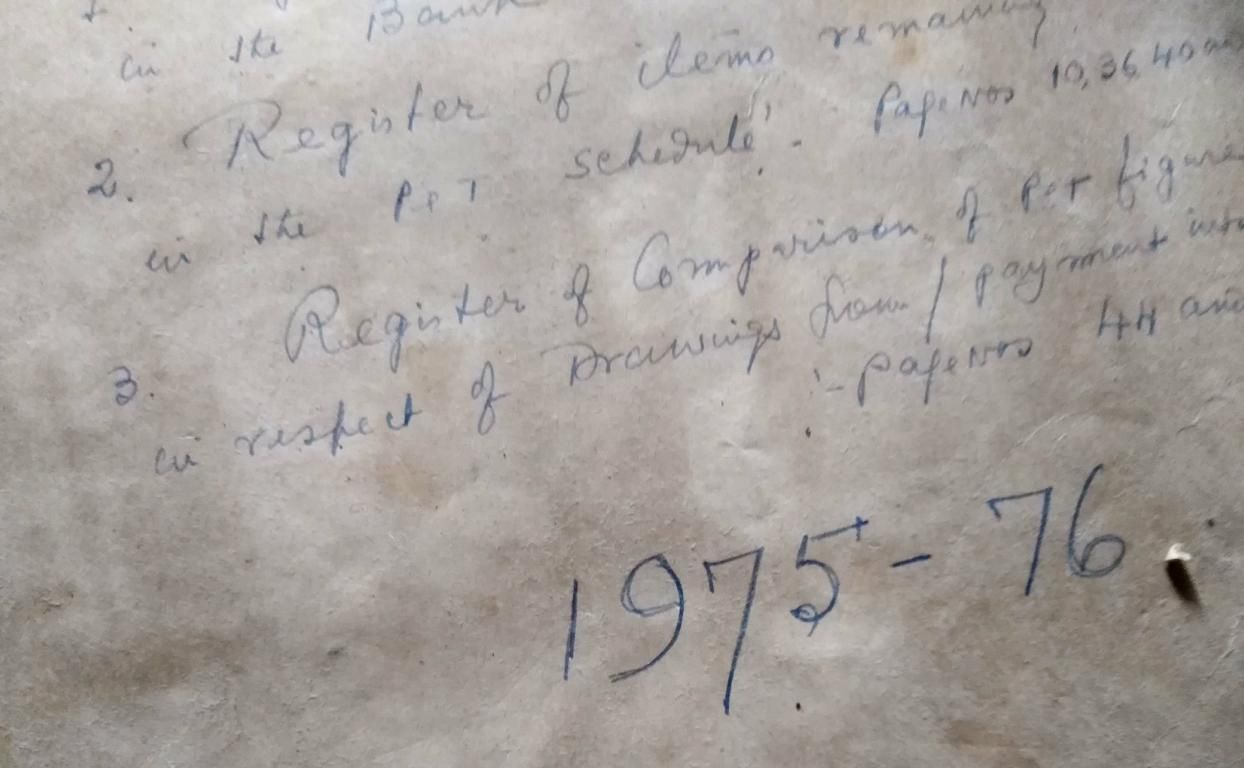 in the Bank
2. Register of items remaining
in the P&T schedule'. - Page Nos 10, 36, 40 an
3. Register of Comparison of P&T figure
in respect of Drawings from / payment into
:- page Nos 44 and
1975 - 76